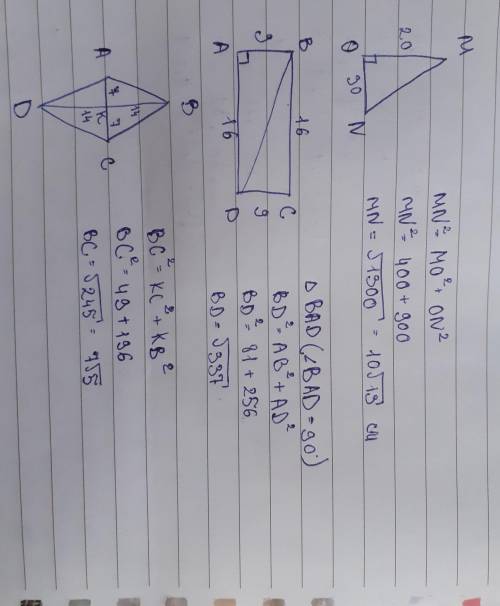 M
20
O
30
N
MN² = MO² + ON²
MN² = 400 + 900
MN = √1300 = 10√13 см
B
16
C
9
9
A
16
D
Δ BAD (∠BAD = 90°)
BD² = AB² + AD²
BD² = 81 + 256
BD = √337.
B
14
A
7
K
7
C
14
D
BC² = KC² + KB²
BC² = 49 + 196
BC = √245 = 7√5